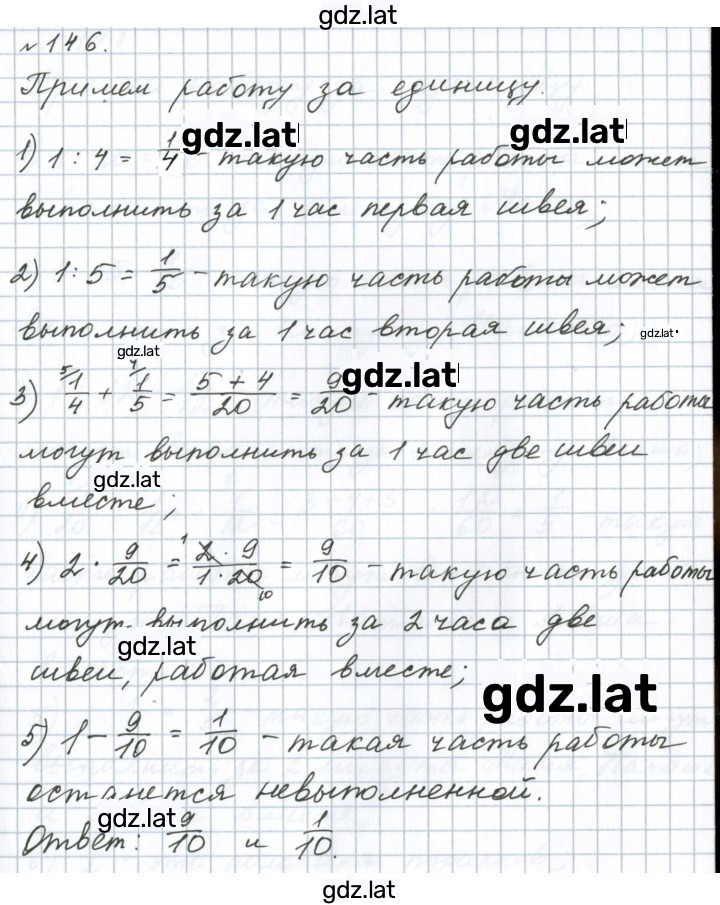 gdz.lat
№ 146.
Примем работу за единицу.
gdz.lat gdz.lat
1) 1 : 4 = 1/4 - такую часть работы может
выполнить за 1 час первая швея;
2) 1 : 5 = 1/5 - такую часть работы может
выполнить за 1 час вторая швея; gdz.lat
gdz.lat gdz.lat
3) ⁵⁄1/4 + ⁴⁄1/5 = (5 + 4)/20 = 9/20 - такую часть работы
могут выполнить за 1 час две швеи
gdz.lat
вместе;
4) 2 · 9/20 = (2 · 9)/(1 · 20) = 9/10 - такую часть работы
могут выполнить за 2 часа две
gdz.lat
швеи, работая вместе;
gdz.lat
5) 1 - 9/10 = 1/10 - такая часть работы
останется невыполненной.
gdz.lat
Ответ: 9/10 и 1/10.
gdz.lat